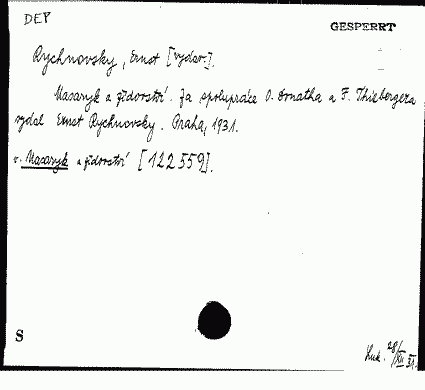 DEP
GESPERRT
Rychnovsky, Ernst [vydav.].
Masaryk a židovství. Za spolupráce O. Donatha a F. Thiebergera
vydal Ernst Rychnovsky. Praha, 1931.
v. Masaryk a židovství [122559].
S
28/XII 31.